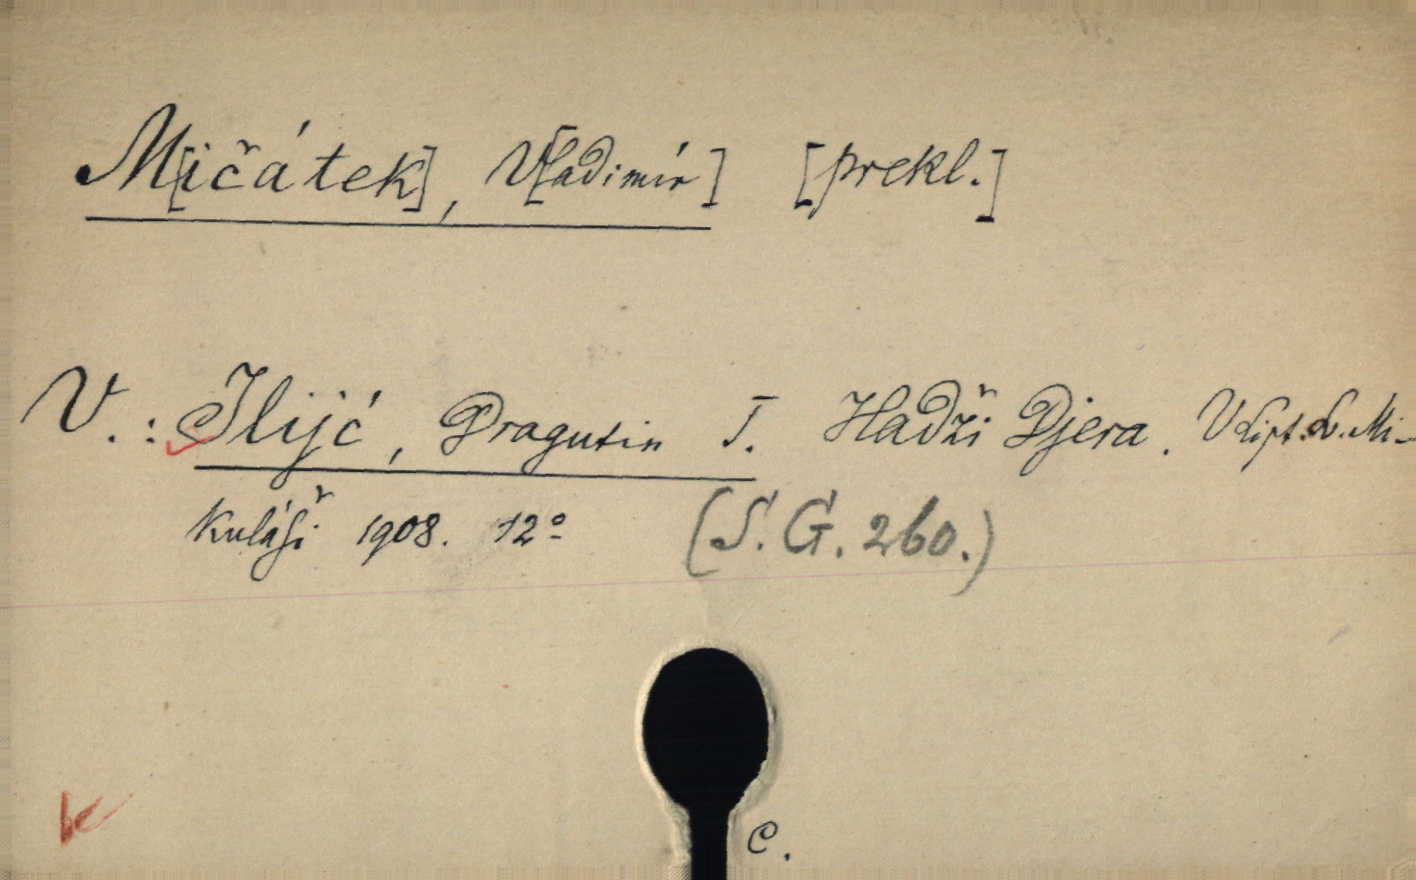 M[ičátek], V[ladimír] [prekl.]
V.: Ilijć, Dragutin J. Hadži Djera. V Lipt. Sv. Mi-
kuláši 1908. 12°
(S. G. 260.)
k
C.